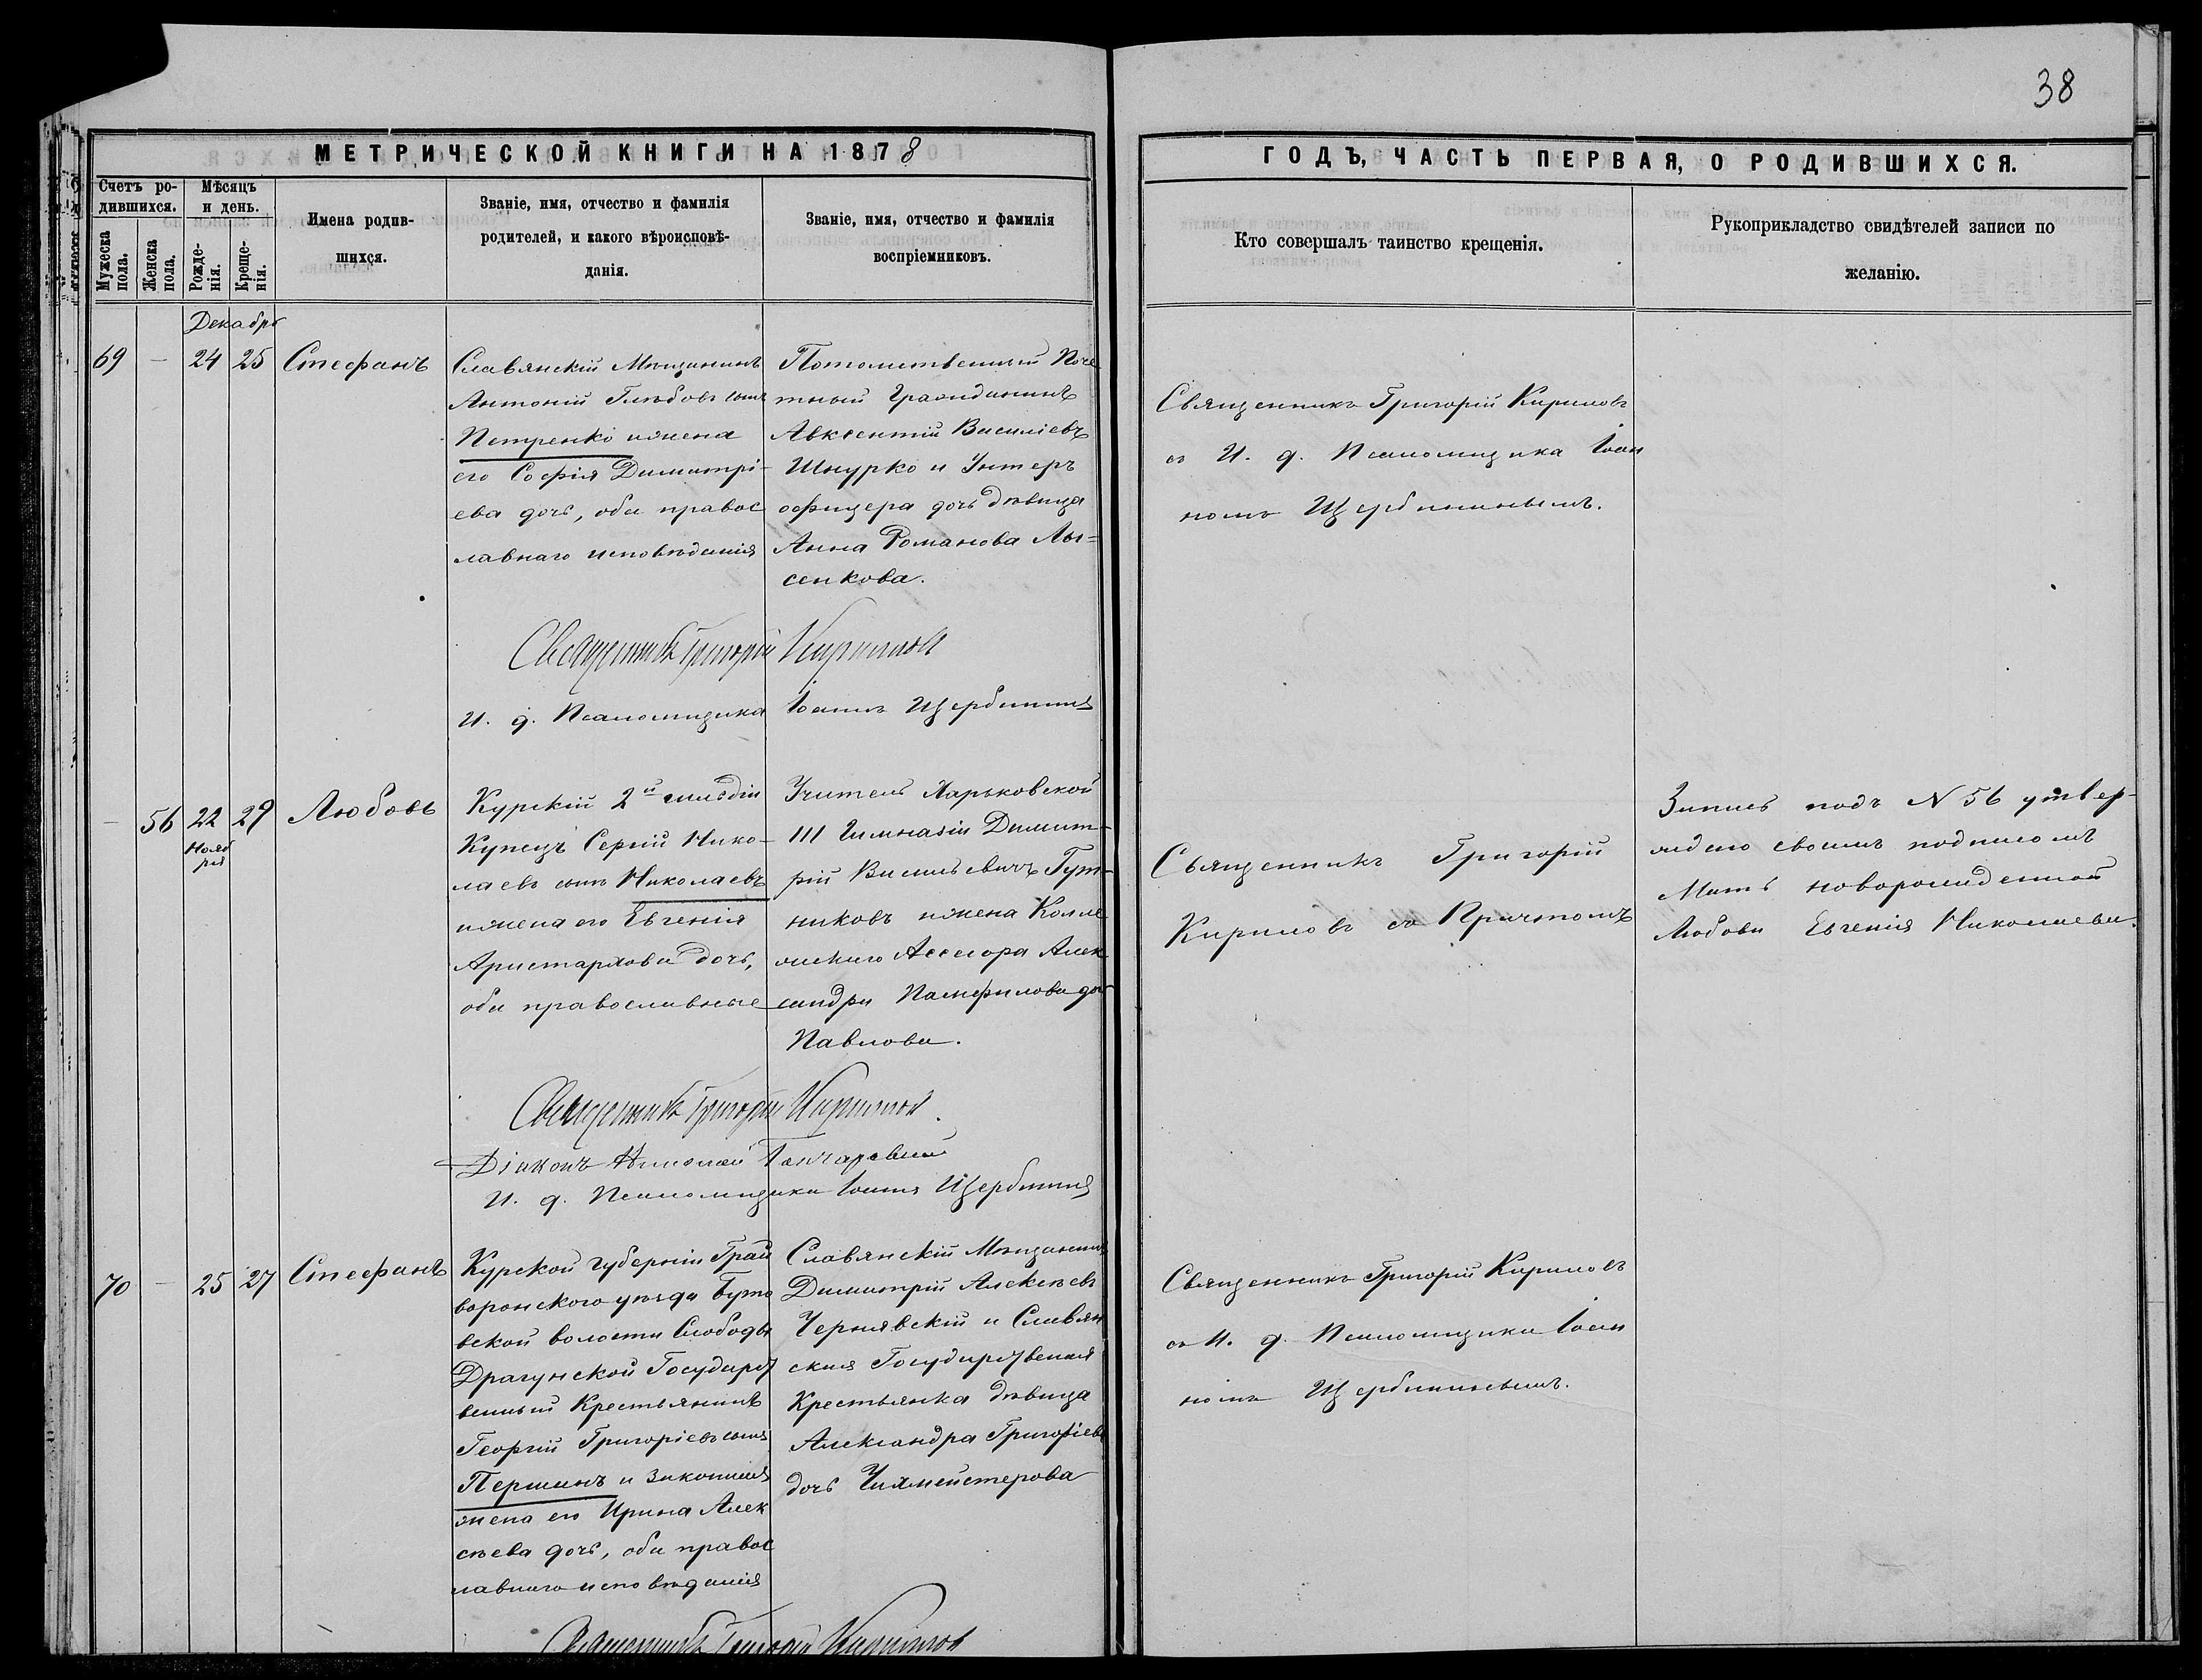 38
МЕТРИЧЕСКОЙ КНИГИ НА 1878
ГОДЪ, ЧАСТЬ ПЕРВАЯ, О РОДИВШИХСЯ.
Счетъ ро-
дившихся.
Мужеска
пола.
Женска
пола.
Мѣсяцъ
и день.
Рожде-
нія.
Креще-
нія.
Имена родив-
шихся.
Званіе, имя, отчество и фамилія
родителей, и какого вѣроисповѣ-
данія.
Званіе, имя, отчество и фамилія
воспріемниковъ.
Кто совершалъ таинство крещенія.
Рукоприкладство свидѣтелей записи по
желанію.
Декабрь
69 — 24 25 Стефанъ
Славянскій Мѣщанинъ
Антоній Глѣбовъ сынъ
Петренко и жена
его Софія Димитрі-
ева дочь, оба правос
лавнаго исповѣданія
Потомственный Поче
тный Гражданинъ
Авксентій Василіевъ
Шкурко и Унтеръ
офицера дочь дѣвица
Анна Романова Лы=
сенкова.
Священникъ Григорій Кириловъ
съ И. д. Псаломщика Іоан
номъ Щербининымъ.
Священникъ Григорій Кириловъ
И. д. Псаломщика Іоаннъ Щербининъ
— 56 22 29 Любовь
Нояб
ря
Курскій 2й гильдіи
Купецъ Сергій Нико-
лаевъ сынъ Николаевъ
и жена его Евгенія
Аристархова дочь,
оба православные
Учитель Харьковской
III Гимназіи Димит-
рій Васильевичъ Гут-
никовъ и жена Колле
жскаго Ассесора Алек
сандра Памфилова до
Павлова.
Священникъ Григорій
Кириловъ съ Причтомъ
Запись подъ N 56 утвер-
ждаю своимъ подписомъ
Мать новорожденной
Любови Евгенія Николаева.
Священникъ Григорій Кириловъ.
Діаконъ Николай Гончаревскій
И. д. Псаломщика Іоаннъ Щербининъ
70 — 25 27 Стефанъ
Курской губерніи Грай
воронскаго уѣзда Буто
вской волости Слободы
Драгунской Государст
венный Крестьянинъ
Георгій Григоріевъ сынъ
Першинъ и законная
жена его Ирина Алек
сѣева дочь, оба правос
лавнаго исповѣданія
Славянскій Мѣщанинъ
Димитрій Алексѣевъ
Чернявскій и Славян
ская Государственная
Крестьянка дѣвица
Александра Григоріева
дочь
Священникъ Григорій Кириловъ
съ И. д. Псаломщика Іоан
номъ Щербининымъ.
Священникъ Григорій Кириловъ